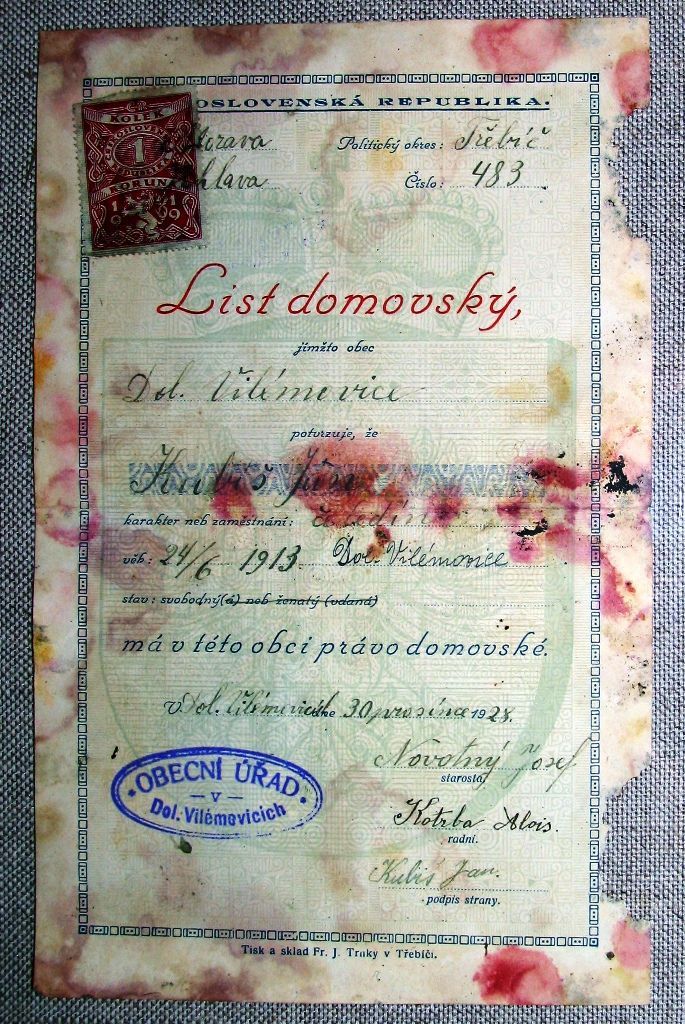 KOLEK
1
KORUNA
1919
OSLOVENSKÁ REPUBLIKA.
Morava Politický okres: Třebíč
hlava Číslo: 483
List domovský,
jímžto obec
Dol. Vilémovice
potvrzuje, že
Kubiš Jan
karakter neb zaměstnání:
věk: 24/6 1913 Dol. Vilémovice
stav: svobodný(á) neb ženatý (vdaná)
má v této obci právo domovské.
v Dol. Vilémovicích dne 30 prosince 1928.
Novotný Josef
starosta
OBECNÍ ÚŘAD
– V –
Dol. Vilémovicích
Kotrba Alois.
radní.
Kubiš Jan.
podpis strany.
Tisk a sklad Fr. J. Trnky v Třebíči.